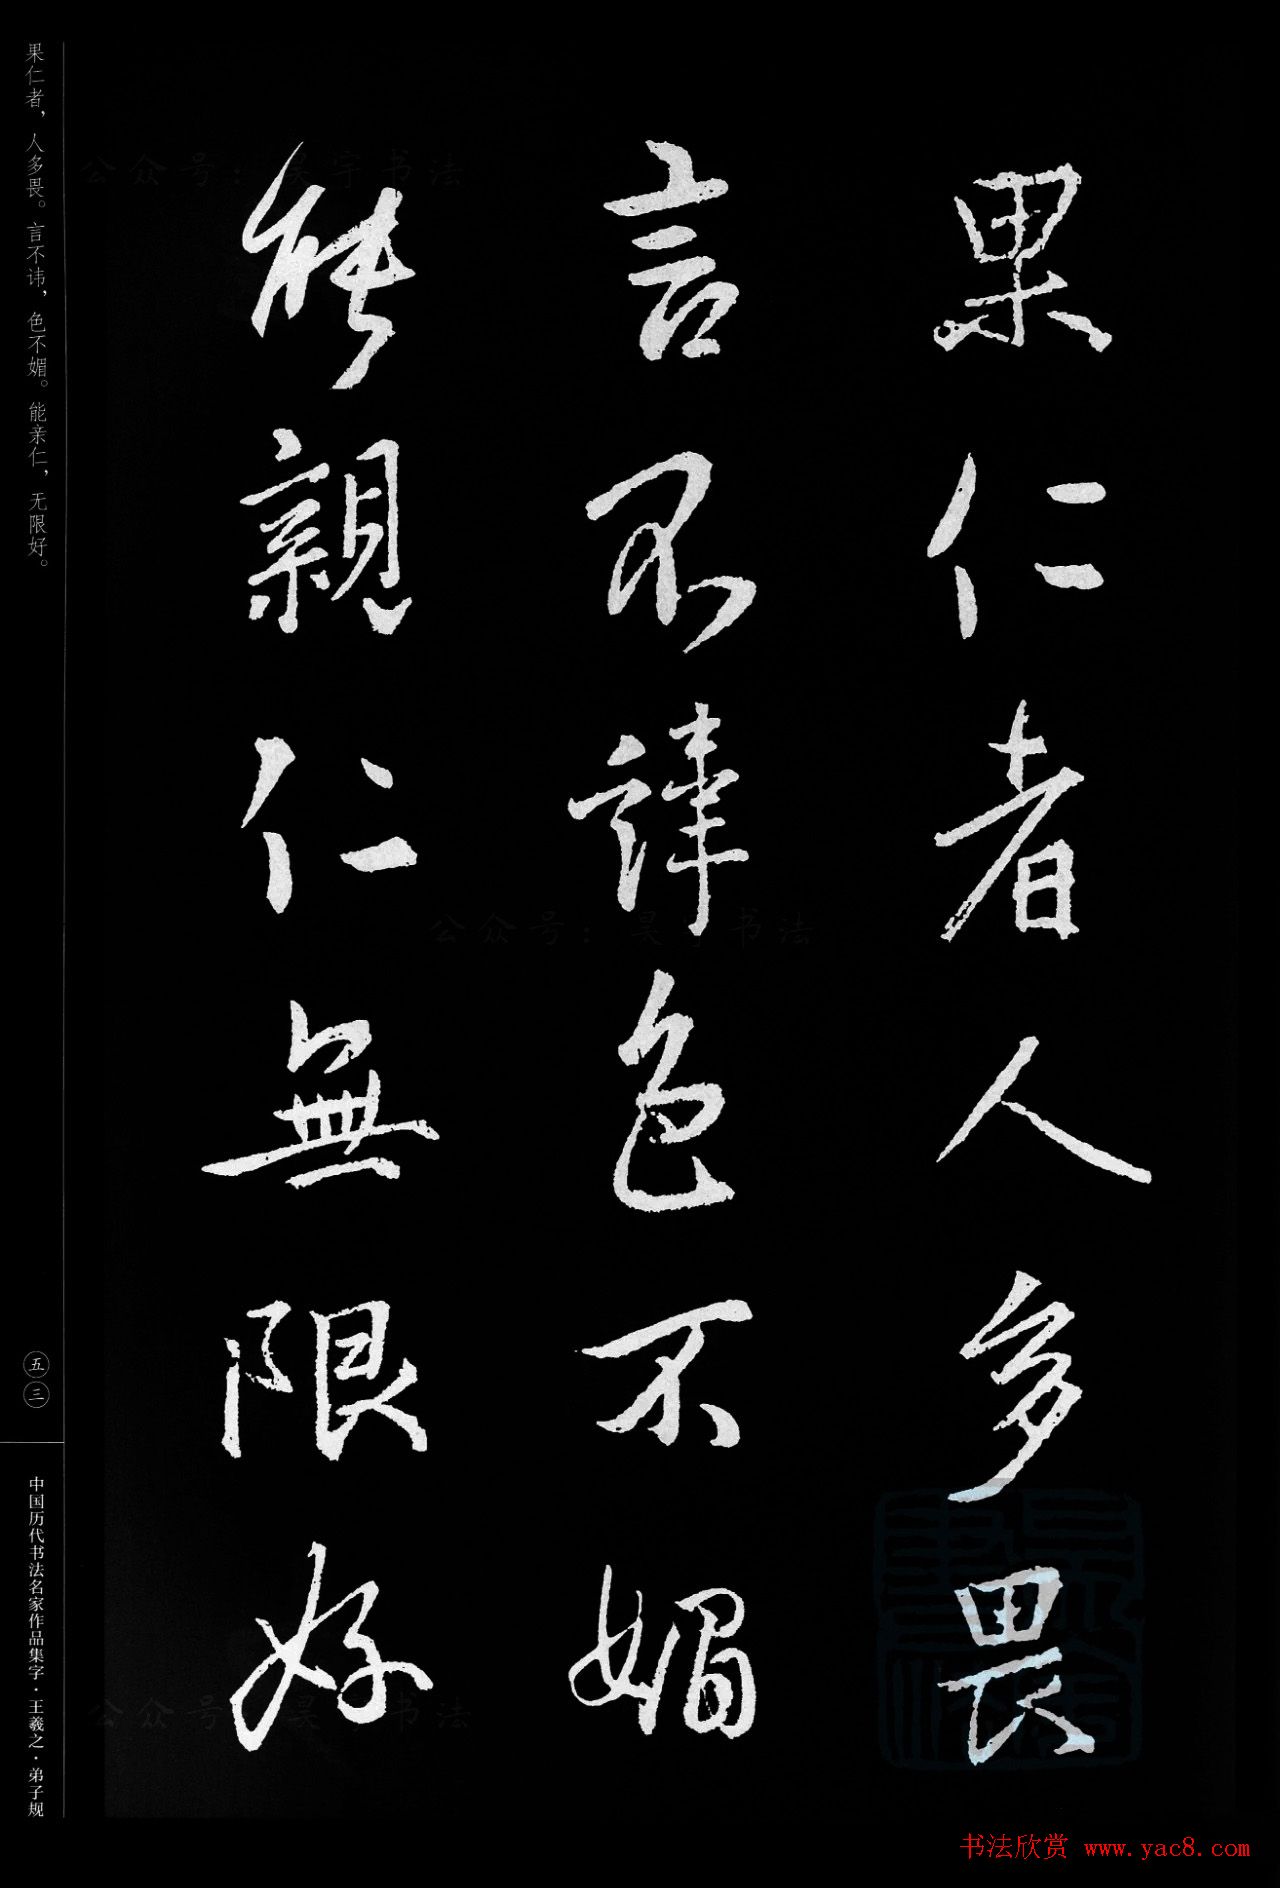 果仁者人多畏
言不諱色不媚
能親仁無限好
果仁者，人多畏。言不讳，色不媚。能亲仁，无限好。
五三
中国历代书法名家作品集字·王羲之·弟子规
公众号：昊宇书法
公众号：昊宇书法
公众号：昊宇书法
书法欣赏 www.yac8.com